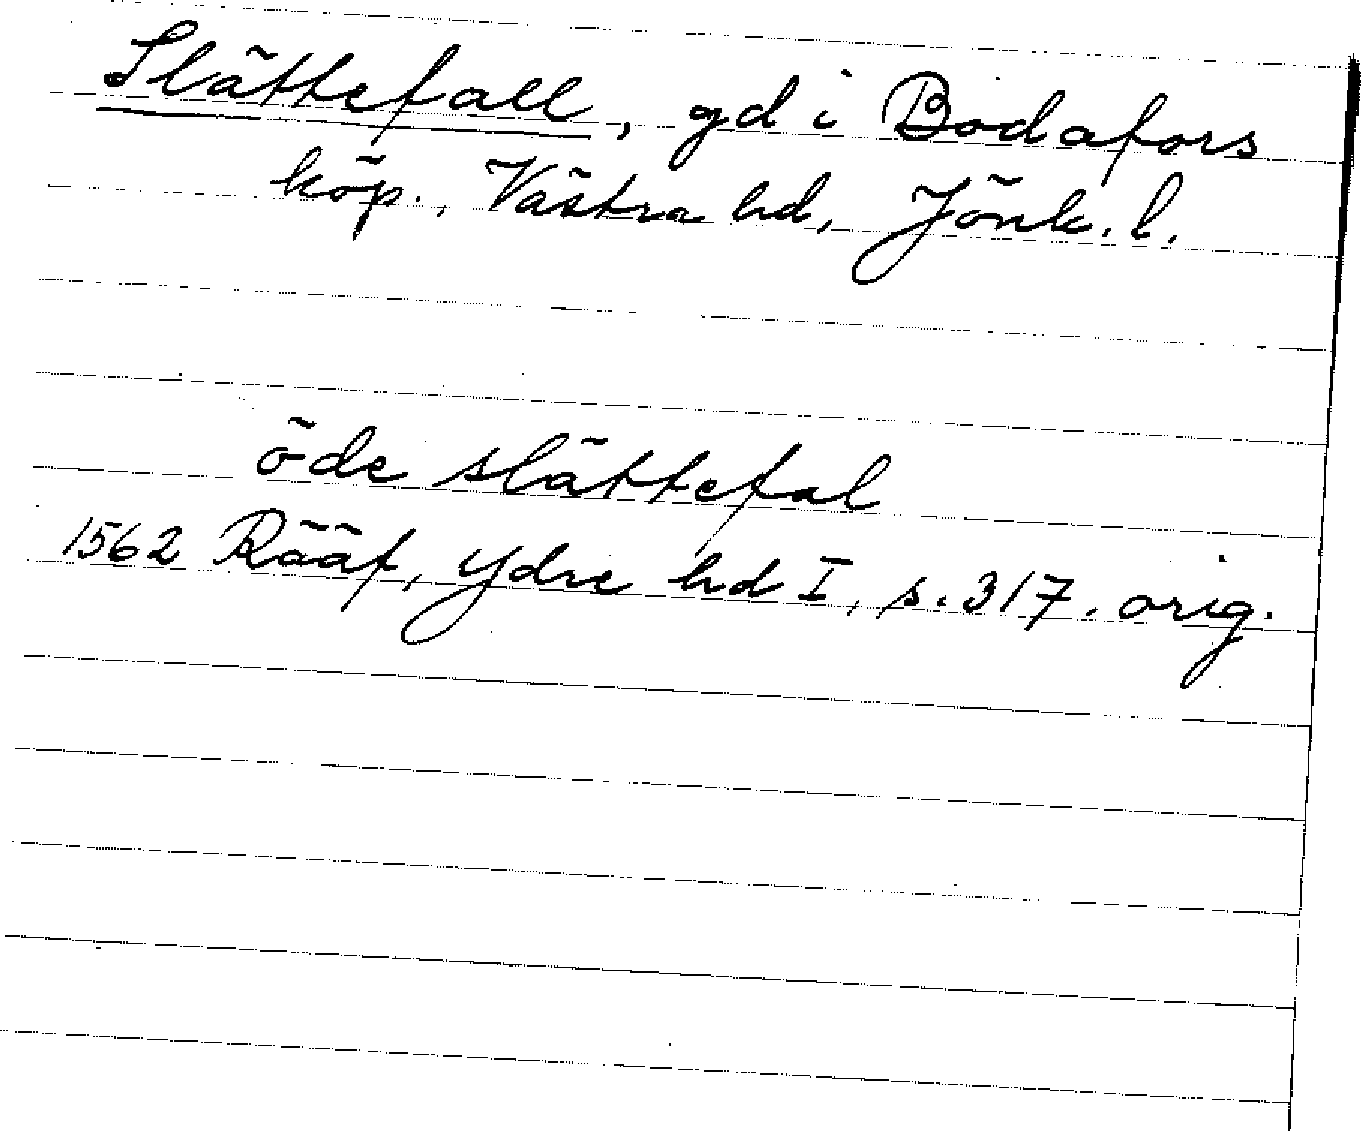 Slättefall, gd i Bodafors
köp., Västra hd, Jönk. l.
öde slättefal
1562 Rääf, Ydre hd I, s. 317. orig.